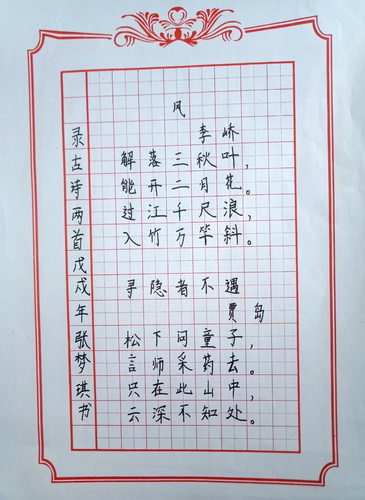 风
李峤
解落三秋叶，
能开二月花。
过江千尺浪，
入竹万竿斜。
寻隐者不遇
贾岛
松下问童子，
言师采药去。
只在此山中，
云深不知处。
录古诗两首戊戌年张梦琪书